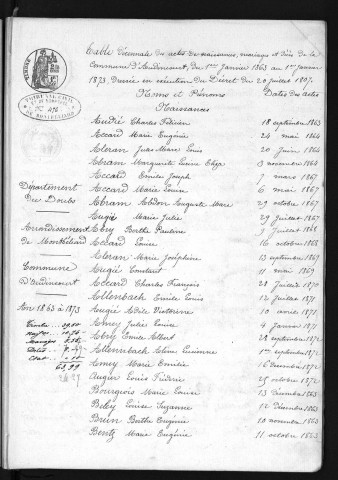 Table Décennale des actes de naissances, mariages et décès de la
Commune d'Audincourt, du 1er Janvier 1863 au 1er Janvier
1873, Dressée en exécution du Décret du 20 Juillet 1807.
Noms et Prénoms Dates des Actes
Naissances
Département
du Doubs
Arrondissement
de Montbéliard
Commune
d'Audincourt
An 1863 à 1873
André Charles Frédéric 18 septembre 1863
Accard Marie Eugénie 24 mai 1864
Aleran Jean Marie Louis 20 Juin 1864
Abram Marguerite Elisa 3 novembre 1864
Accard Emilie Joseph 7 mars 1867
Accard Marie Louise 6 mai 1867
Abram Abdon Auguste Marie 29 octobre 1867
Augié Marie Julie 29 Juillet 1867
Abry Berthe Pauline 3 Juillet 1868
Accard Louise 16 octobre 1868
Aleran Marie Joséphine 13 septembre 1869
Augié Constant 11 mai 1869
Accard Charles François 28 Juillet 1870
Allenbach Emile Louis 12 Juillet 1871
Augié Adèle Victorine 10 avril 1871
Amey Julie Louise 4 Janvier 1871
Abry Emile Albert 28 septembre 1872
Allenbach Hélène 1er septembre 1872
Amey Marie Emélie 16 décembre 1872
Augier Louis Frédéric 25 octobre 1872
Bourgeois Marie Louise 13 Décembre 1863
Beley Louise Suzanne 12 Décembre 1863
Brun Berthe Eugénie 10 novembre 1863
Bentz Marie Eugénie 11 octobre 1863